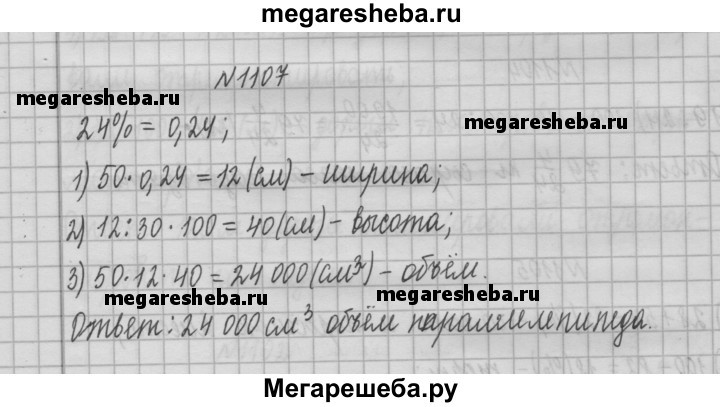 megaresheba.ru
N1107
megaresheba.ru
24% = 0,24;
megaresheba.ru
1) 50·0,24 = 12 (см) - ширина;
2) 12:30·100 = 40 (см) - высота;
3) 50·12·40 = 24 000 (см³) - объём.
megaresheba.ru
megaresheba.ru
Ответ: 24 000 см³ объём параллелепипеда.
Мегарешеба.ру